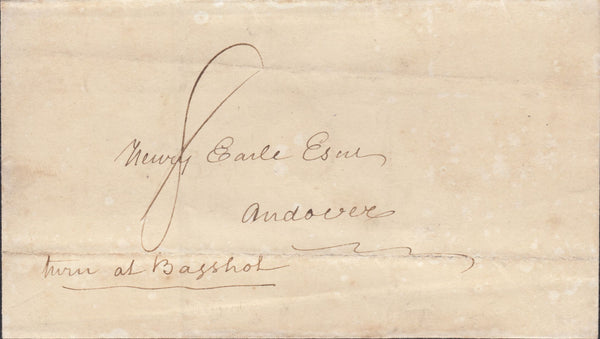 8
Henry Earle Esqre
Andover
turn at Bagshot